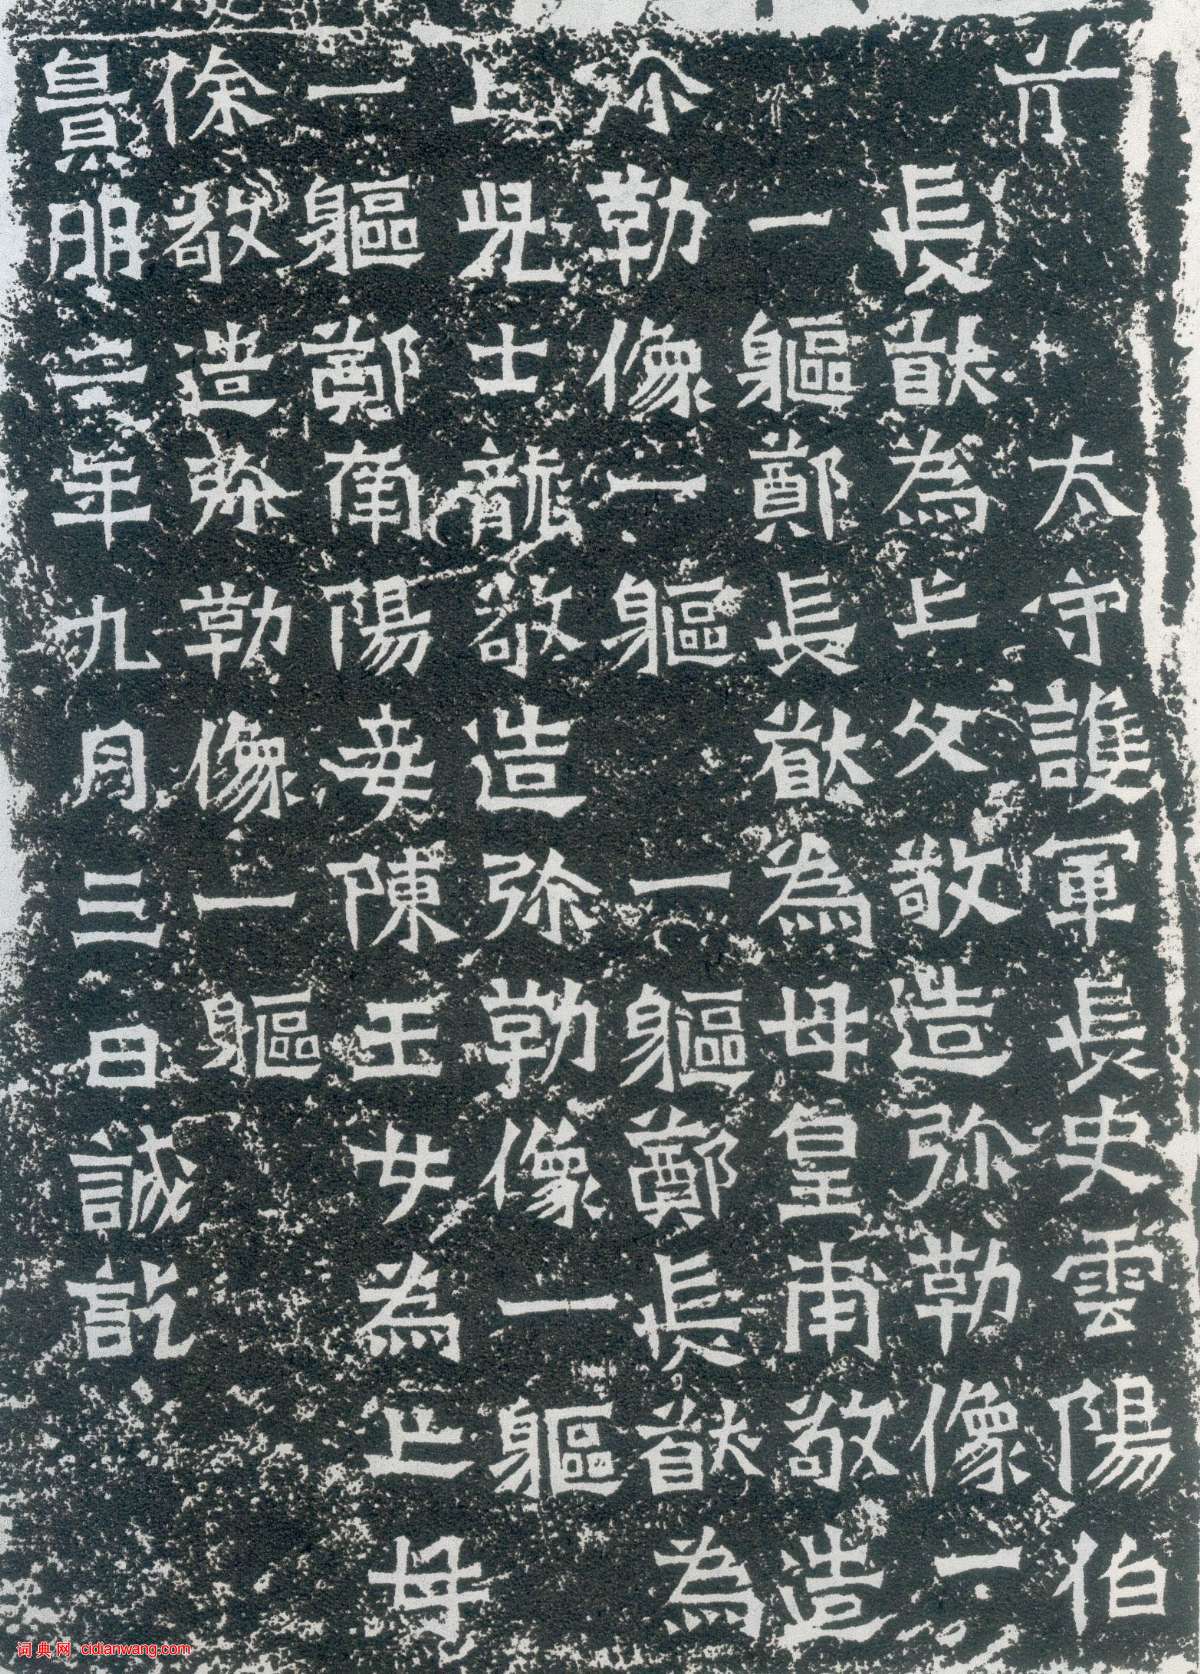 前太守護軍長史雲陽伯
長猷為亡父敬造弥勒像一
一軀鄭長猷為母皇甫敬造
弥勒像一軀一軀鄭長猷為
亡兒士龍敬造弥勒像一軀
一軀鄭南陽妾陳王女為亡母
徐敬造弥勒像一軀
景明二年九月三日誡訖
词典网 cidianwang.com